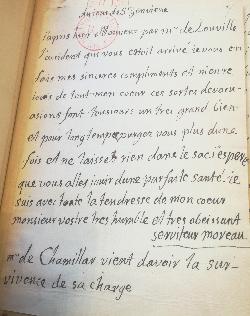 du jour de Ste Genivieve
japris hier Monsieur par mr de Louville
l'accident qui vous estoit arrivé je vous en
faie mes sinceres compliments et men re
jouis de tout mon coeur ces sortes devacu-
asions font tousjours un tres grand bien
et pour longtemps purgez vous plus dune
fois et ne laisset rien dans le sac jespere
que vous alles jouir dune parfaite santé. je
suis avec toute la tendresse de mon coeur
monsieur vostre tres humble et tres obeissant
serviteur moreau
mr de Chamillar vient davoir la sur-
vivence de sa charge